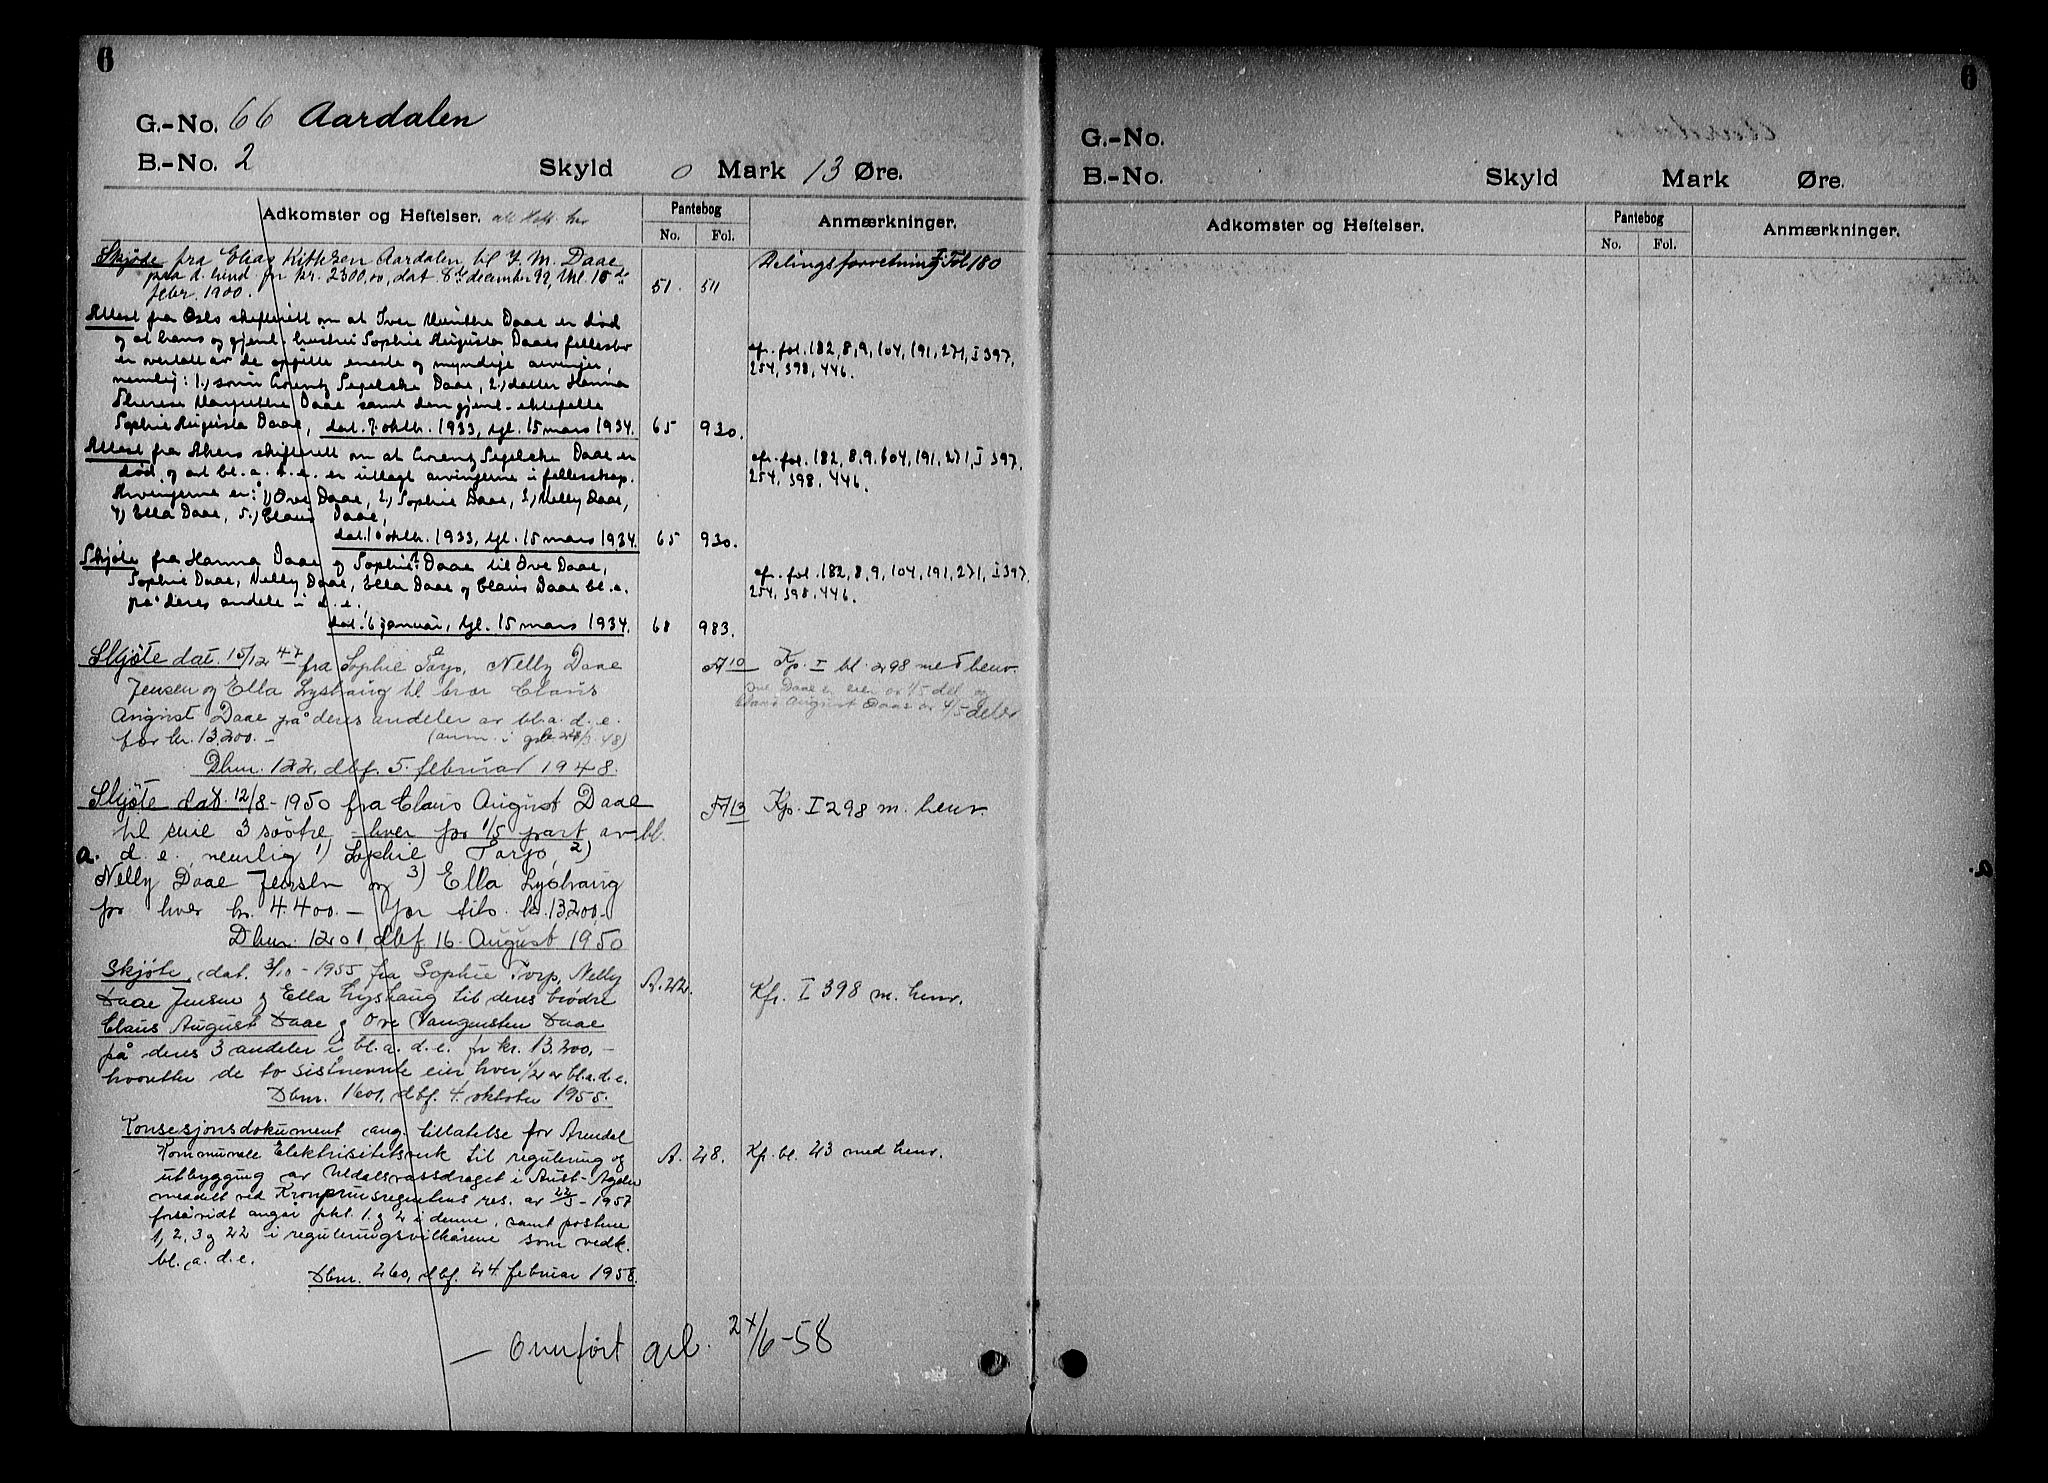 6
G.-No. 66 Aardalen
B.-No. 2 Skyld 0 Mark 13 Øre.
Adkomster og Heftelser. Pantebog Anmærkninger.
No. Fol.
Skjøde fra Elias Aardalen bl. J. M. Daae
paa d. for kr. 2300,00, dat. 8de december 99, thl. 15de
febr. 1900. 51. 511
Delingsforretning I Fol 180
Attest fra Oslo skifterett om at Iver Munthe Daae er død
og at hans og gjenl. hustru Sophie Augusta Daaes fellesbo
er overtatt av de opgitte eneste og myndige arvinger,
nemlig: 1.) sønn Lorentz Segelcke Daae, 2.) datter Hanna
Therese Margrethe Daae samt den gjenl. ektefelle
Sophie Augusta Daae, dat. 7. oktbr. 1933, tgl. 15 mars 1934. 65 930.
cfr. fol. 182, 8, 9, 104, 191, 271, I 397,
254, 398, 446.
Attest fra Akers skifterett om at Lorentz Segelcke Daae er
død, og at bl. a. d. e. er utlagt arvingerne i fellesskap.
Arvingerne er: 1) Ove Daae, 2.) Sophie Daae, 3.) Nelly Daae,
4) Ella Daae, 5.) Claus Daae,
dat. 10 oktbr. 1933, tgl. 15 mars 1934. 65 930.
cfr. fol. 182, 8, 9, 104, 191, 271, I 397,
254, 398, 446.
Skjøte fra Hanna Daae og Sophie A. Daae til Ove Daae,
Sophie Daae, Nelly Daae, Ella Daae og Claus Daae bl. a.
på deres andele i d. e.
dat. 6 januar, tgl. 15 mars 1934. 68 983.
cfr. fol. 182, 8, 9, 104, 191, 271, I 397,
254, 398, 446.
Skjøte dat. 15/12 47 fra Sophie Torp, Nelly Daae
Jensen og Ella Lyshaug til bror Claus
August Daae på deres andeler av bl. a. d. e.
for kr. 13.200.-
Dbnr. 122, dbf. 5. februar 1948.
A 10 Kfr. I bl. 298 med henv.
Ove Daae er eier av 1/5 del og
Claus August Daae av 4/5 deler
Skjøte dat. 12/8-1950 fra Claus August Daae
til sine 3 søstre - hver for 1/5 part av bl.
a. d. e., nemlig 1) Sophie Torp, 2)
Nelly Daae Jensen og 3) Ella Lyshaug
for hver kr. 4.400.- for tils. kr. 13200.-
Dbnr. 1201, dbf 16. August 1950
A 13 Kfr. I 298 m. henv.
Skjøte, dat. 3/10-1955 fra Sophie Torp, Nelly
Daae Jensen og Ella Lyshaug til deres brødre
Claus August Daae og Ove Vangensten Daae
på deres 3 andeler i bl. a. d. e. for kr. 13.200,-
hvoretter de to sistnevnte eier hver 1/2 av bl. a. d. e.
Dbnr. 1601, dbf. 4. oktober 1955.
A. 22. Kfr. I 398 m. henv.
Konsesjonsdokument ang. tillatelse for Arendal
Kommunale Elektrisitetsverk til regulering og
utbygging av Uldalsvassdraget i Aust-Agder
meddelt ved Kronprinsregentens res. av 22/3-1957
forsåvidt angår pkt. 1 og 2 i denne, samt postene
1, 2, 3 og 22 i reguleringsvilkårene som vedk.
bl. a. d. e.
Dbnr. 260, dbf. 24. februar 1958.
A. 28. Kfr. bl. 23 med henv.
- Omført
6
G.-No.
B.-No. Skyld Mark Øre.
Adkomster og Heftelser. Pantebog Anmærkninger.
No. Fol.